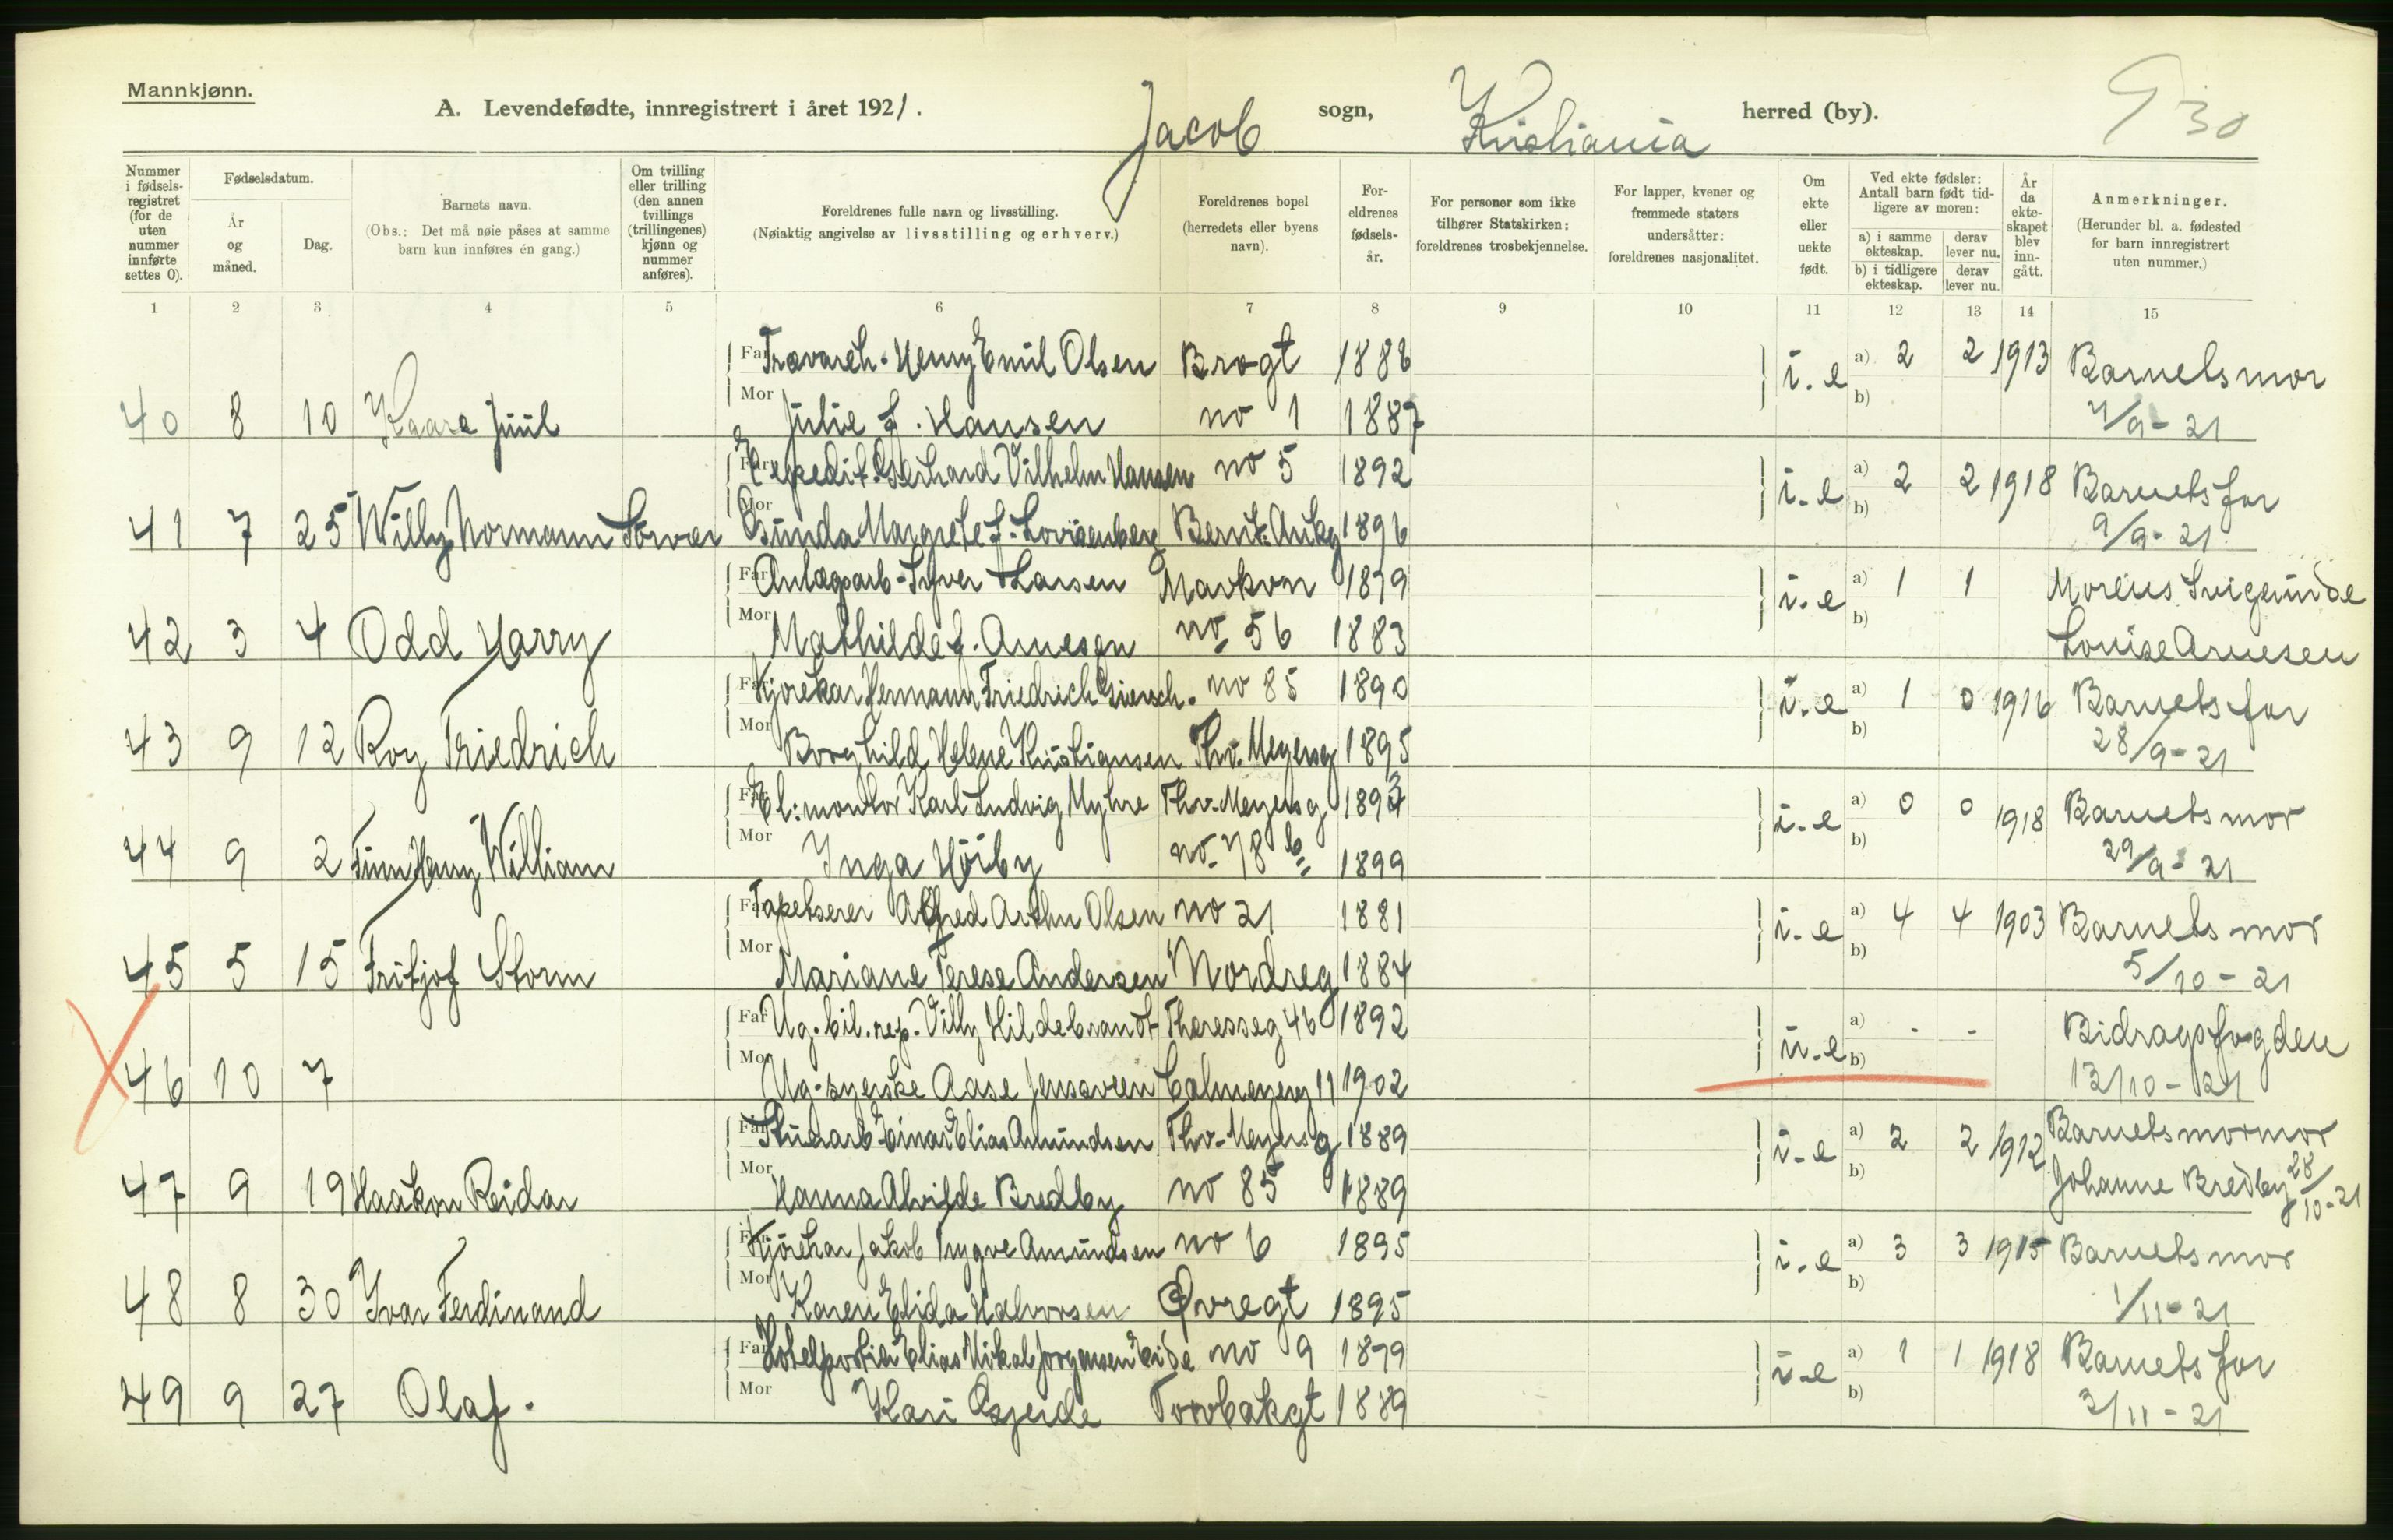 Mannkjønn.
A. Levendefødte, innregistrert i året 1921. Jacob sogn, Kristiania herred (by). 930
Nummer i fødsels-registret (for de uten nummer innførte settes 0).
Fødselsdatum.
År og måned.
Dag.
Barnets navn.
(Obs.: Det må nøie påses at samme barn kun innføres én gang.)
Om tvilling eller trilling (den annen tvillings (trillingenes) kjønn og nummer anføres).
Foreldrenes fulle navn og livsstilling.
(Nøiaktig angivelse av livsstilling og erhverv.)
Foreldrenes bopel
(herredets eller byens navn).
For-eldrenes fødsels-år.
For personer som ikke tilhører Statskirken: foreldrenes trosbekjennelse.
For lapper, kvener og fremmede staters undersåtter: foreldrenes nasjonalitet.
Om ekte eller uekte født.
Ved ekte fødsler: Antall barn født tid-ligere av moren:
a) i samme ekteskap.
derav lever nu.
b) i tidligere ekteskap.
derav lever nu.
År da ekte-skapet blev inn-gått.
Anmerkninger.
(Herunder bl. a. fødested for barn innregistrert uten nummer.)
1 2 3 4 5 6 7 8 9 10 11 12 13 14 15
Far Henry Emil Olsen Brogt 1888 i.e a) 2 2 1913 Barnets mor
40 8 10 Kaare Juul Mor Julie f. Hansen no 1 1887 b) /9-21
Far Expedit. Gerhard Vilhelm Hansen no 5 1892 i.e a) 2 2 1918 Barnets far
41 7 25 Willy Normann Mor Gunda Margrete f. Lovisenberg Bernt Ankg 1896 b) 9/9-21
Far Anlægsarb. Syver Larsen Markvn 1879 i.e a) 1 1 Morens Svigerinde
42 3 4 Odd Harry Mor Mathilde f. Arnesen no 56 1883 b) Louise Arnesen
Far Kjørekar Hermann Friedrich no 85 1890 i.e a) 1 0 1916 Barnets far
43 9 12 Roy Friedrich Mor Borghild Helene Kristiansen Thv. Meyersg 1895 b) 28/9-21
Far El: montør Karl Ludvig Myhre Thv. Meyersg 189 i.e a) 0 0 1918 Barnets mor
44 9 2 Finn Henry William Mor Inga Höiby no. 78 b 1899 b) 29/9-21
Far Tapetserer Alfred Arthu Olsen no 21 1881 i.e a) 4 4 1903 Barnets mor
45 5 15 Fritjof Storm Mor Mariane Terese Andersen Nordreg 1884 b) 5/10-21
Far Ug. bil. rep. Villy Hildebrandt Theresseg 46 1892 u.e a) - - Bidragsfogden
46 10 7 Mor Ug. syerske Aase Calmeyerg 11 1902 b) 13/10-21
Far Einar Elias Amundsen Thv. Meyersg 1889 i.e a) 2 2 1912 Barnets mormor
47 9 19 Haakon Reidar Mor Hanna Alvilde Bredby no 85 1889 b) Johanne Bredby 28/10-21
Far Kjörekar Jakob Trygve Amundsen no 6 1895 i.e a) 3 3 1915 Barnets mor
48 8 30 Ivar Ferdinand Mor Karen Elida Halvorsen Øvregt 1895 b) 1/11-21
Far Hotelportier Elias Mikal Jørgensen Eide no 9 1879 i.e a) 1 1 1918 Barnets far
49 9 27 Olaf. Mor Kari Torvbakgt 1889 b) 3/11-21